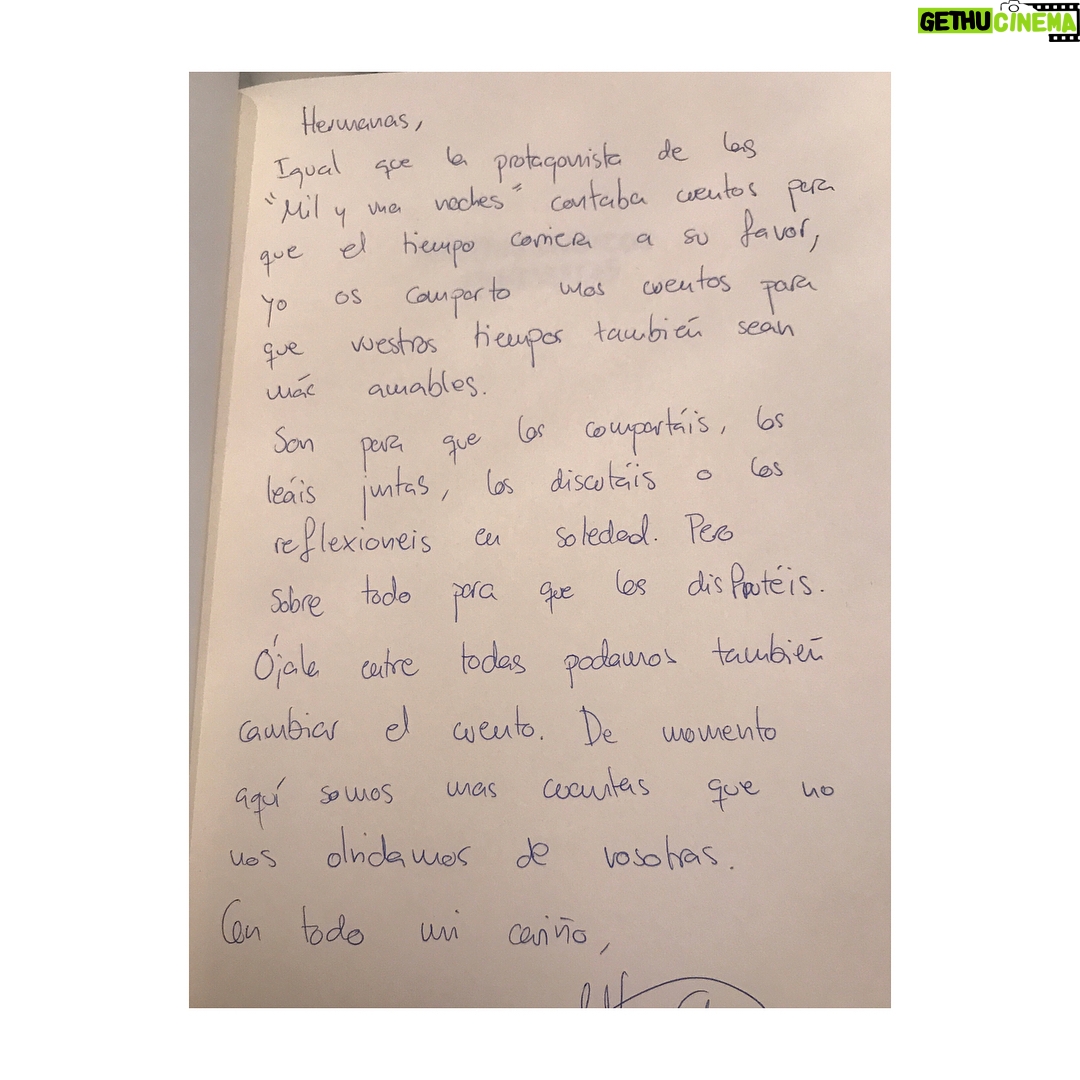 GETHUCINEMA
Hermanas,
Igual que la protagonista de las
"Mil y una noches" contaba cuentos para
que el tiempo corriera a su favor,
yo os comparto unos cuentos para
que vuestros tiempos también sean
más amables.
Son para que los compartáis, los
leáis juntas, los discutáis o los
reflexioneis en soledad. Pero
sobre todo para que los disfrutéis.
Ójala entre todas podamos también
cambiar el cuento. De momento
aquí somos unas cuantas que no
nos olvidamos de vosotras.
Con todo mi cariño,